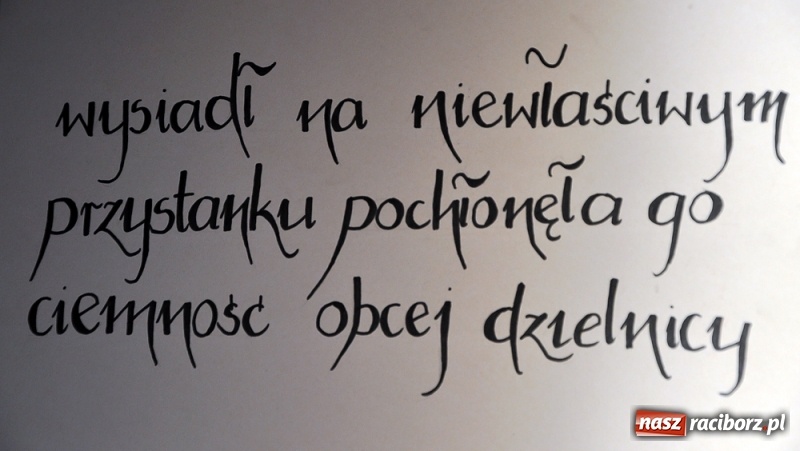 wysiadł na niewłaściwym
przystanku pochłonęła go
ciemność obcej dzielnicy
nasz raciborz.pl